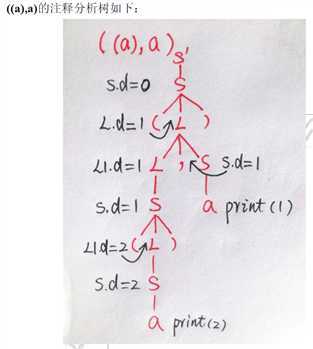 ((a),a)的注释分析树如下：
((a),a)
S'
S.d=0 S
L.d=1 ( L )
L1.d=1 L , S S.d=1
S.d=1 S a print(1)
L1.d=2 ( L )
S.d=2 S
a print(2)